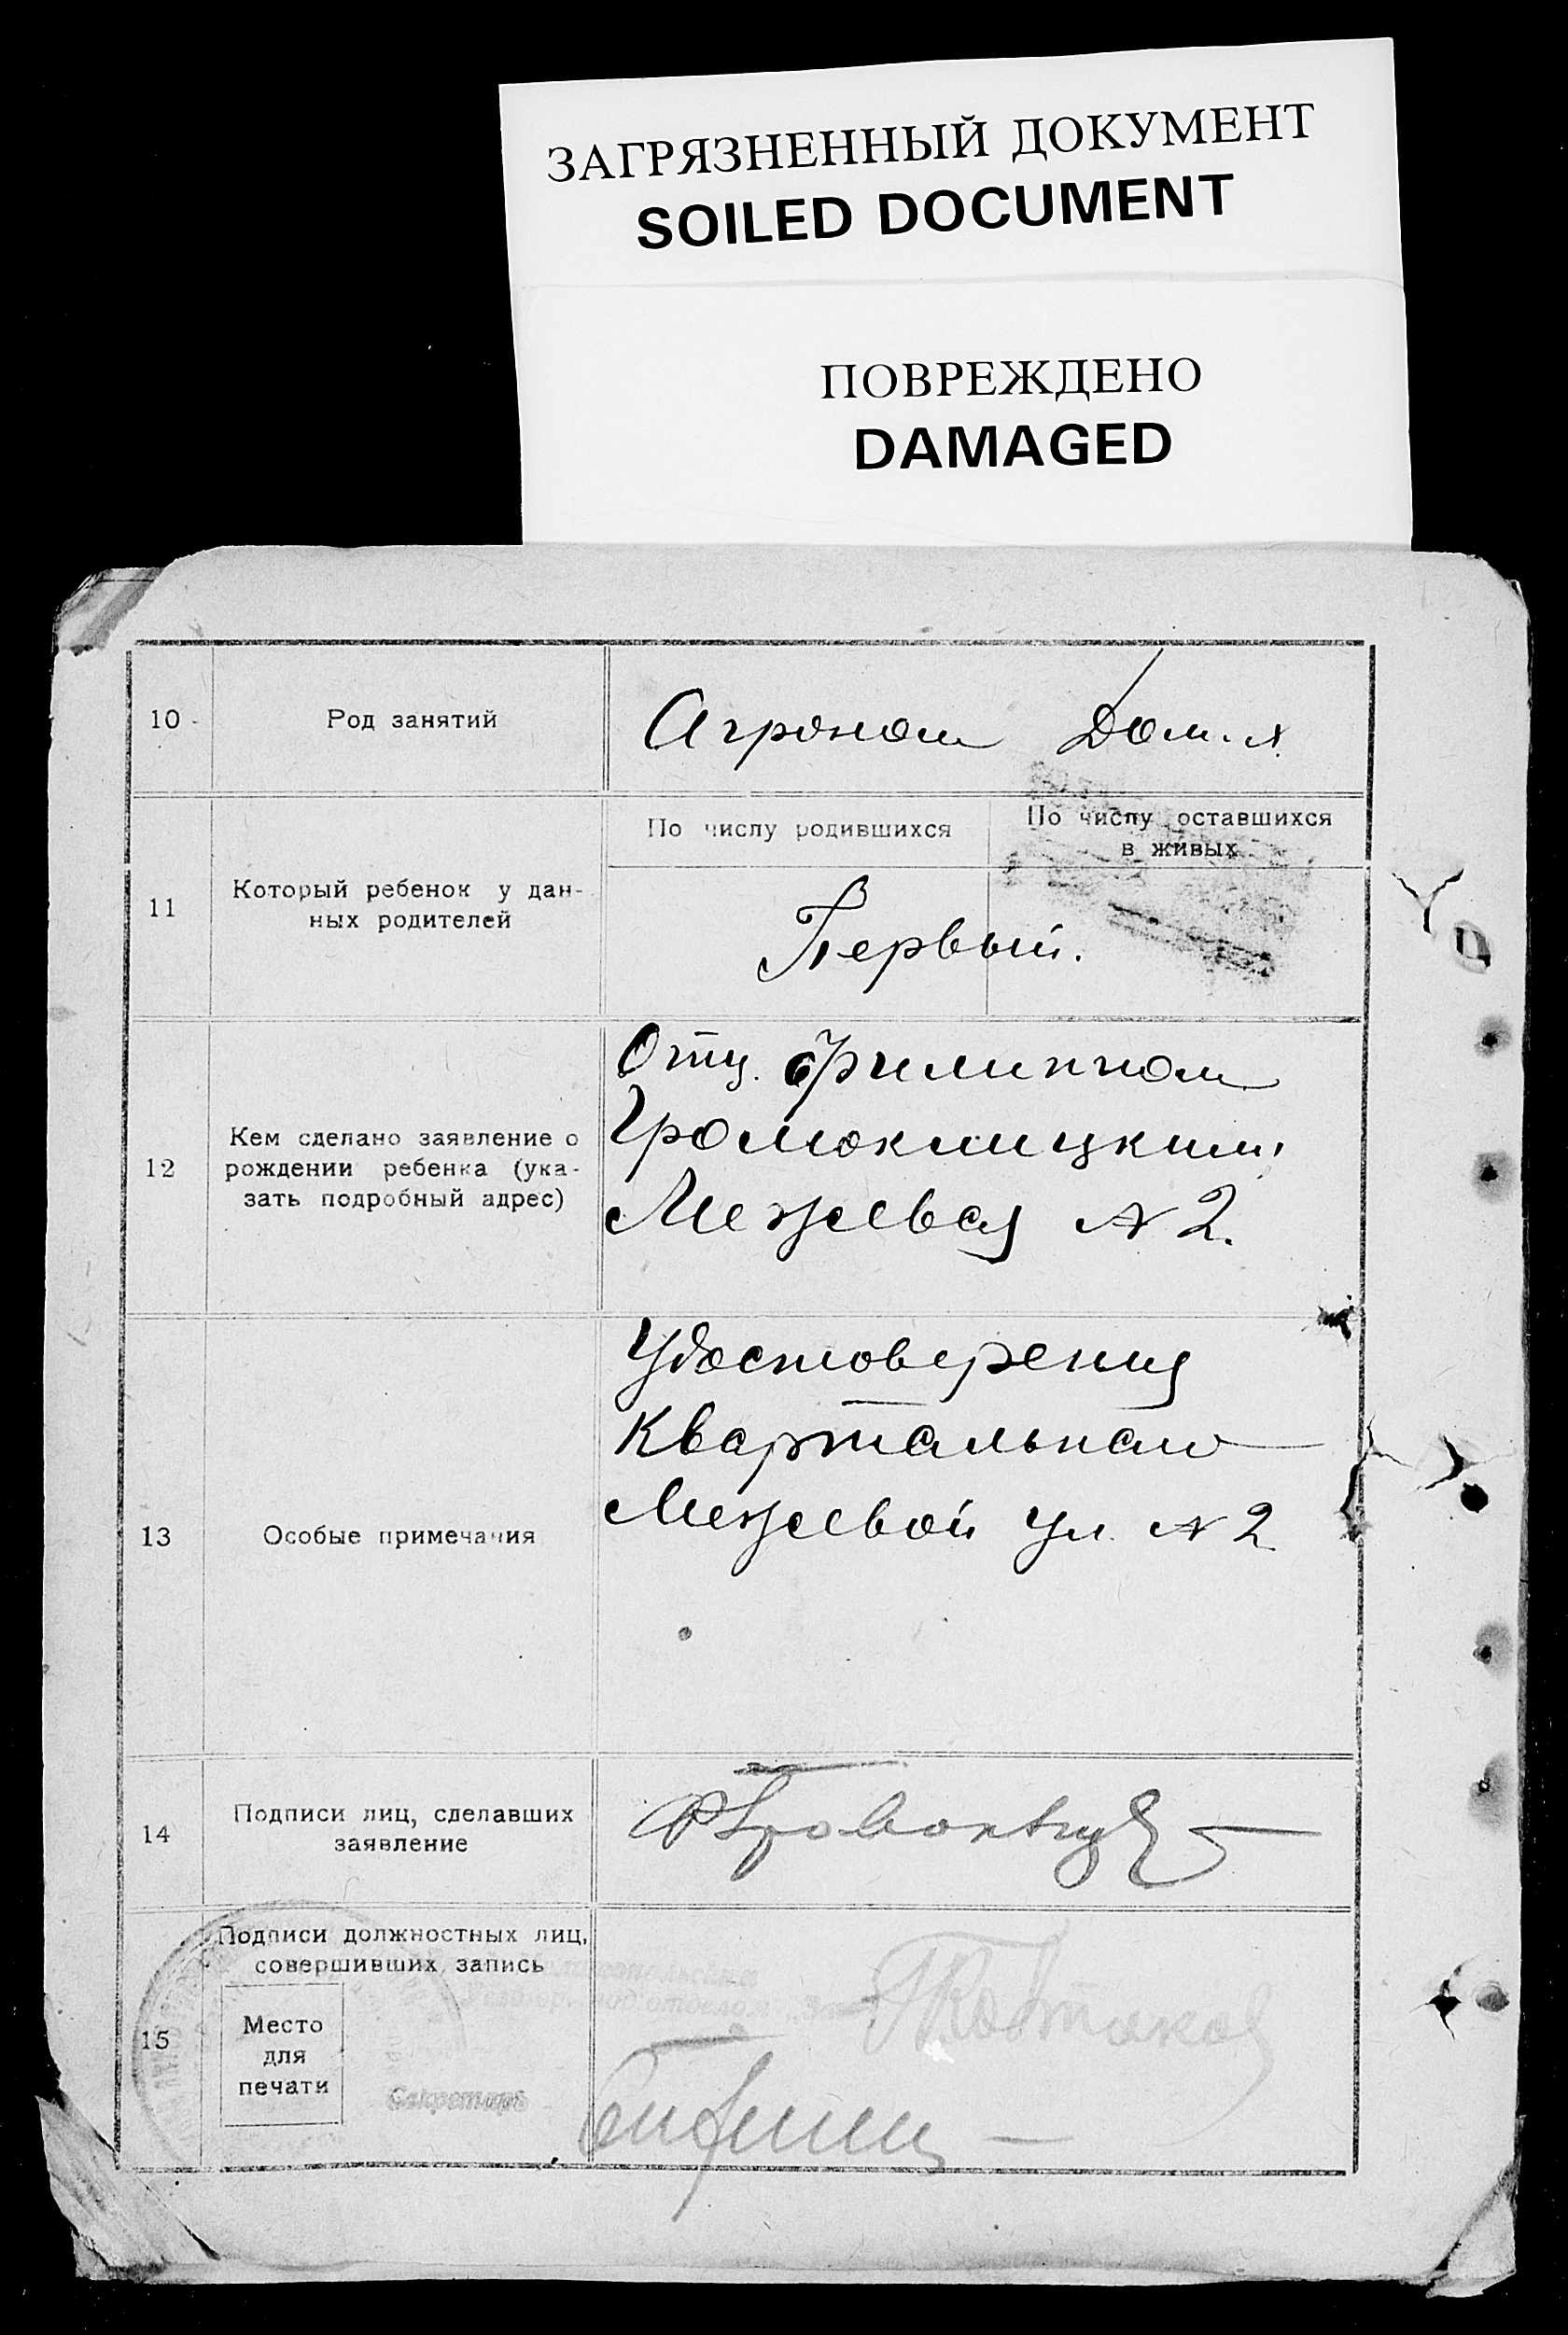 ЗАГРЯЗНЕННЫЙ ДОКУМЕНТ
SOILED DOCUMENT
ПОВРЕЖДЕНО
DAMAGED
10
Род занятий
Агроном Дом. х.
11
Который ребенок у дан-
ных родителей
По числу родившихся
По числу оставшихся
в живых
Первый.
12
Кем сделано заявление о
рождении ребенка (ука-
зать подробный адрес)
Отц. Филиппом
Межевая № 2.
13
Особые примечания
Удостоверения
Квартального
Межевой ул. № 2
14
Подписи лиц, сделавших
заявление
15
Подписи должностных лиц,
совершивших запись
Место
для
печати
Секретарь